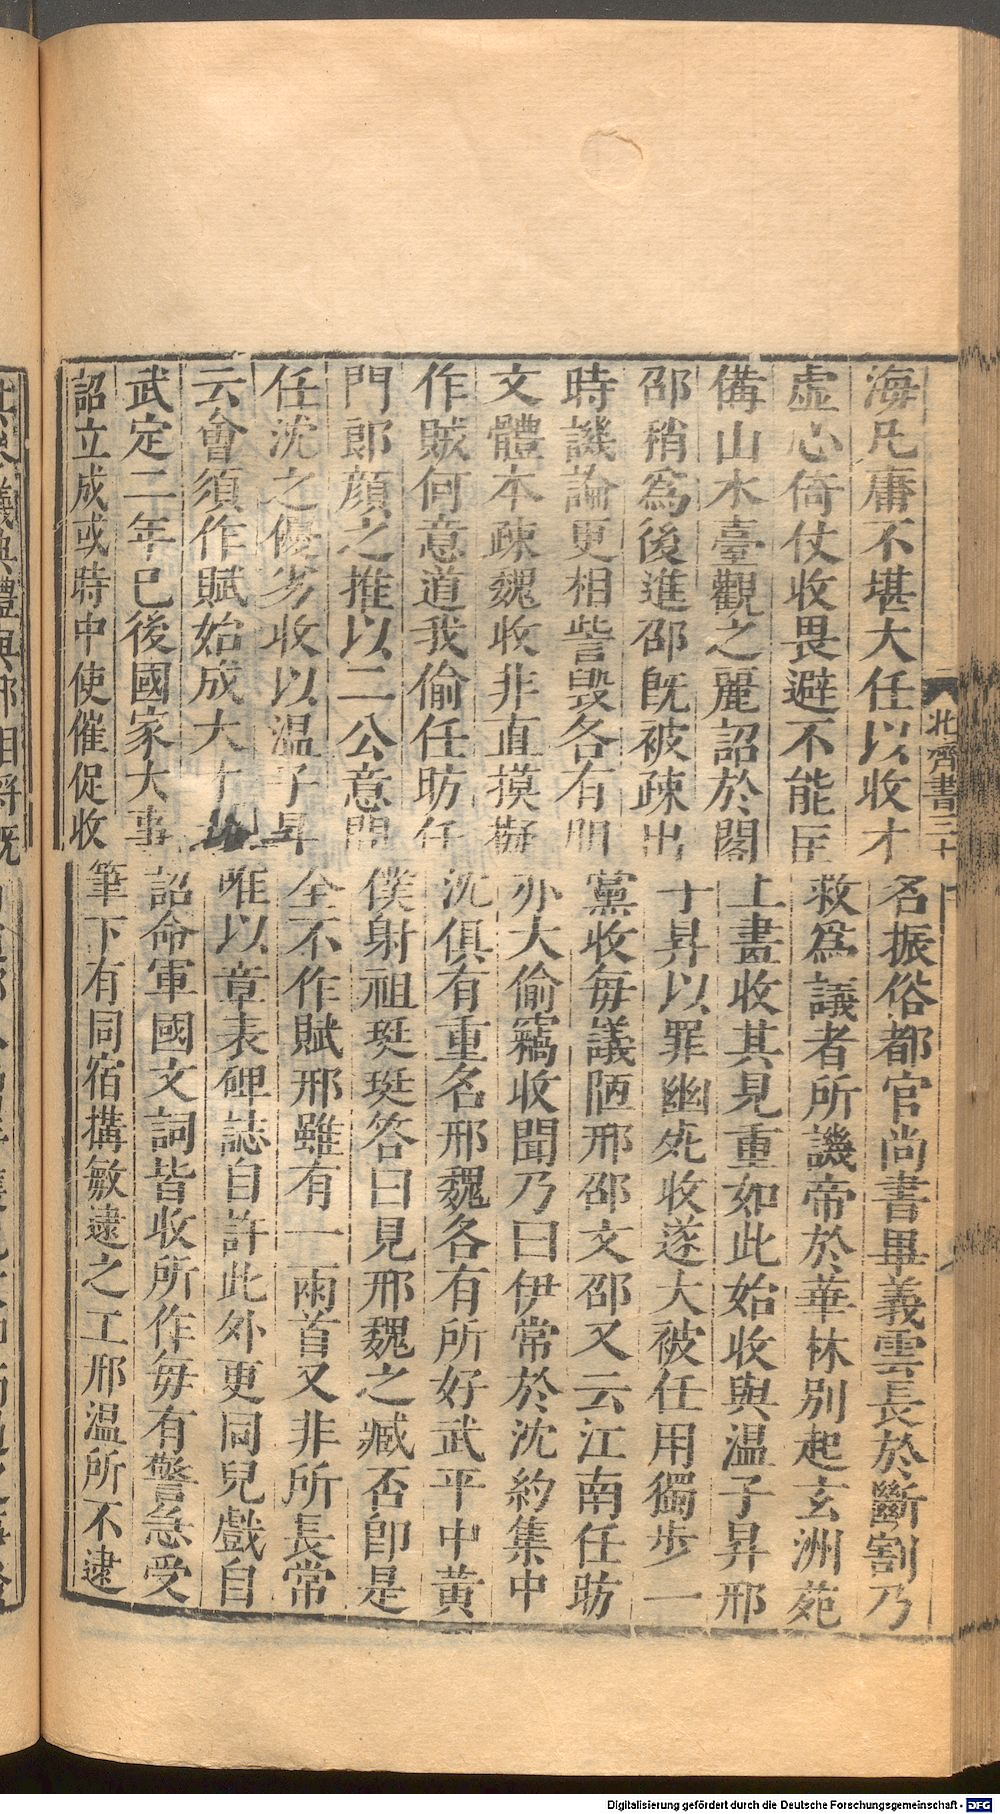 海凡庸不堪大任以收才名振俗都官尚書畢義雲長於斷割乃
虛心倚仗收畏避不能匡救爲議者所譏帝於華林别起玄洲苑
備山水臺觀之麗詔於閣上畫收其見重如此始收與温子昇邢
邵稍爲後進邵旣被疎出子昇以罪幽死收遂大被任用獨步一
時議論更相訾毀各有朋黨收每議陋邢邵文邵又云江南任昉
文體本疎魏收非直摸擬亦大偷竊收聞乃曰伊常於沈約集中
作賊何意道我偷任昉任沈俱有重名邢魏各有所好武平中黄
門郎顔之推以二公意問僕射祖珽珽答曰見邢魏之臧否卽是
任沈之優劣收以温子昇全不作賦邢雖有一兩首又非所長常
云會須作賦始成大才士唯以章表碑誌自許此外更同兒戲自
武定二年已後國家大事詔命軍國文詞皆收所作每有警急受
詔立成或時中使催促收筆下有同宿構敏速之工邢温所不逮
北齊書三十
Digitalisierung gefördert durch die Deutsche Forschungsgemeinschaft - DFG